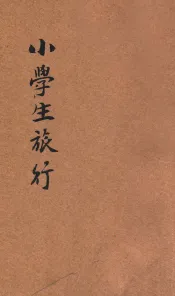 小學生旅行